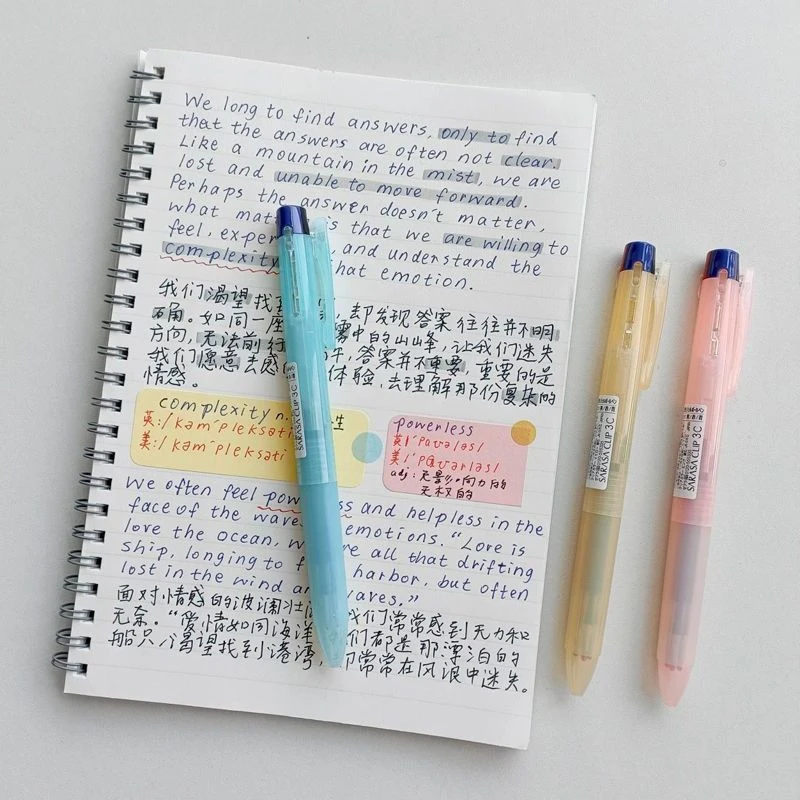 We long to find answers, only to find
that the answers are often not clear.
Like a mountain in the mist, we are
lost and unable to move forward.
Perhaps the answer doesn't matter,
what mat is that we are willing to
feel, exper , and understand the
complexity hat emotion.
我们渴望找 , 却发现答案往往并不明
确。如同一座 雾中的山峰, 让我们迷失
方向, 无法前行 , 答案并不重要, 重要的是
我们愿意去感 体验, 去理解那份复杂的
情感。
complexity n. 性
英:/kəmˈpleksəti
美:/kəmˈpleksəti
powerless
英/ˈpaʊələs/
美/ˈpaʊərləs/
adj: 无影响力的
无权的
We often feel pow ss and helpless in the
face of the wave emotions. "Love is
love the ocean, w re all that drifting
ship, longing to f harbor, but often
lost in the wind an waves."
面对情感的波澜壮 我们常常感到无力和
无奈。"爱情如同海洋 们都是那漂泊的
船只, 渴望找到港湾, 却常常在风浪中迷失。
SARASA CLIP 3C
SARASA CLIP 3C
SARASA CLIP 3C